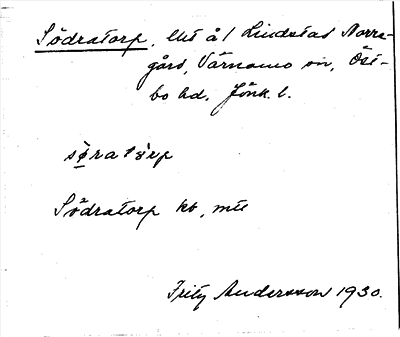 Södratorp, lht å/ Lindstad Norre-
gård, Värnamo sn, Öst-
bo hd. Jönk. l.
sø̀ra tǫrp
Södratorp kb, mtl
Fritz Andersson 1930.